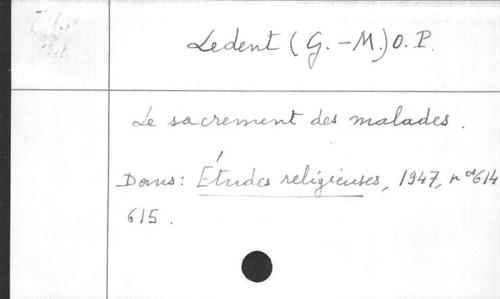 Ledent (G.-M.) O.P.
Le sacrement des malades.
Dans: Études religieuses, 1947, nos 614
615.